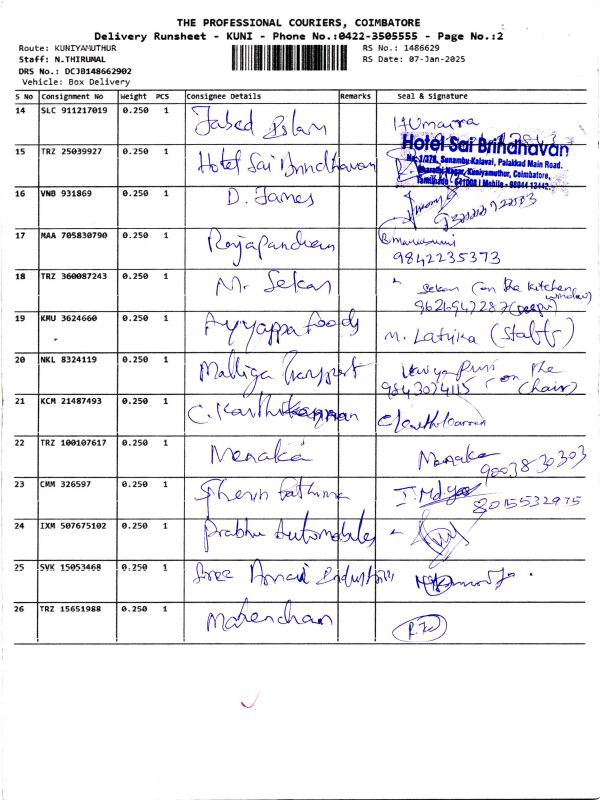 THE PROFESSIONAL COURIERS, COIMBATORE
Delivery Runsheet - KUNI - Phone No.:0422-3505555 - Page No.:2
Route: KUNIYAMUTHUR RS No.: 1486629
Staff: N.THIRUMAL RS Date: 07-Jan-2025
DRS No.: DCJB148662902
Vehicle: Box Delivery
S No Consignment No Weight PCS Consignee Details Remarks Seal & Signature
14 SLC 911217019 0.250 1 Jabed Islam Humaira
Hotel Sai Brindhavan
No: 1/378, Sunambu Kalavai, Palakkad Main Road,
Bharathi Nagar, Kuniyamuthur, Coimbatore,
Tamilnadu - 641008 | Mobile - 98944 13442
15 TRZ 25039927 0.250 1 Hotel Sai Brindhavan
16 VNB 931869 0.250 1 D. James
17 MAA 705830790 0.250 1 Rajapandian
9842235373
18 TRZ 360087243 0.250 1 M. Sekar Sekar (on the kitchen window)
9626947287 (Deepa)
19 KMU 3624660 0.250 1 Ayyappa foods M. Latvika (Staff)
20 NKL 8324119 0.250 1 Malliga Transport (on the
9843024115 chair)
21 KCM 21487493 0.250 1 C. Karthikeyan
22 TRZ 100107617 0.250 1 Menaka Menaka
9003830303
23 CMM 326597 0.250 1 Sherin fathima
8015532975
24 IXM 507675102 0.250 1 Prabhu Automobiles
25 SVK 15053468 0.250 1 Sree Annai Industries
26 TRZ 15651988 0.250 1 Mohanchan